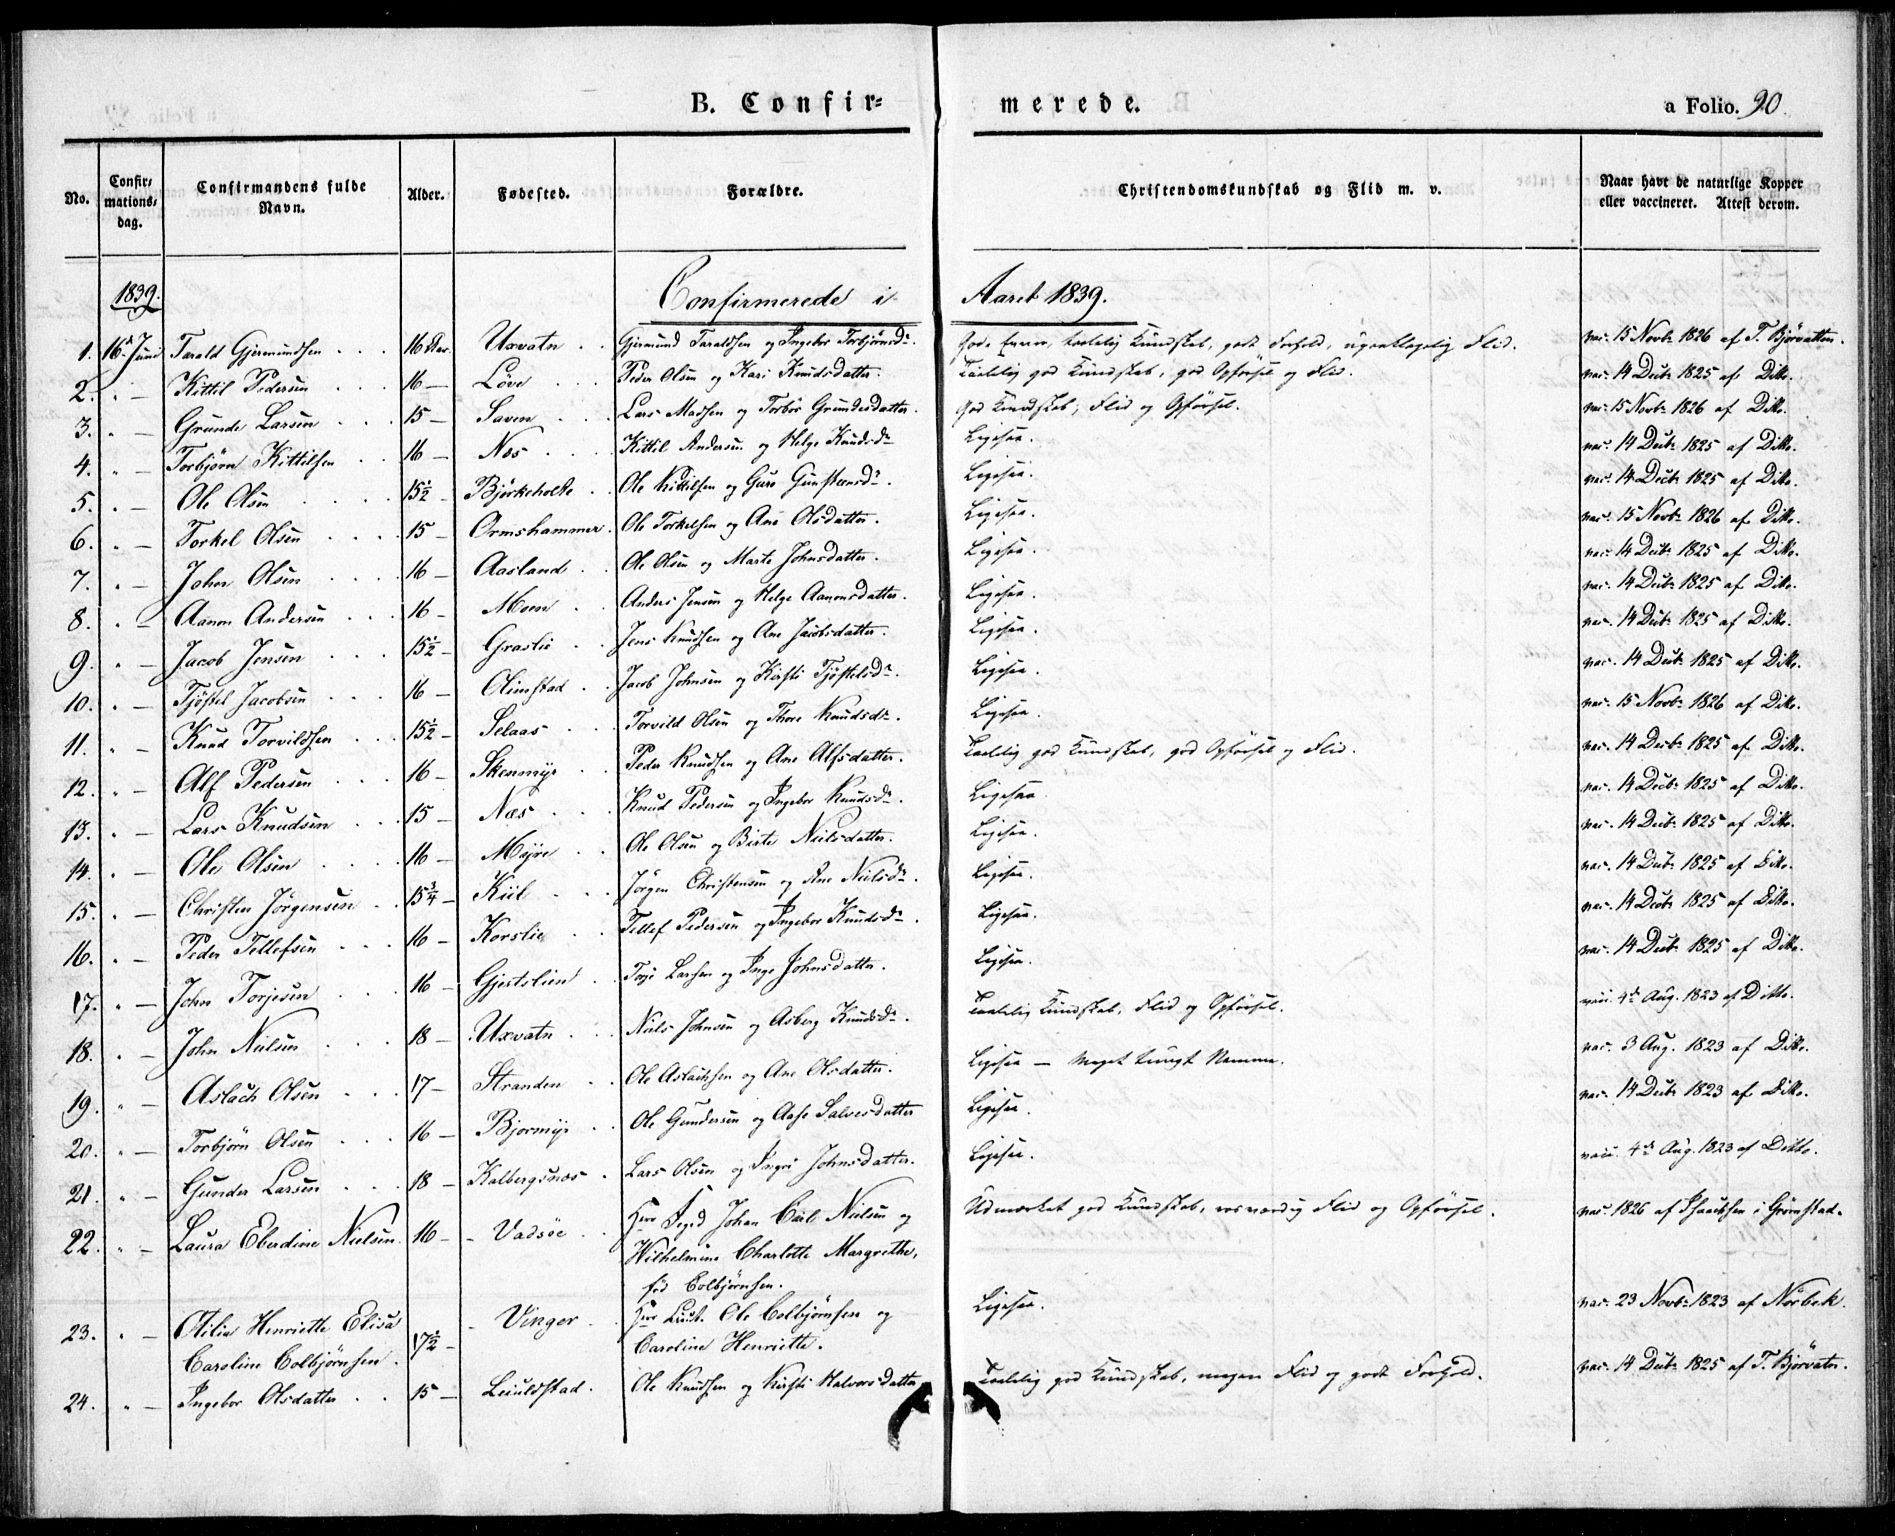 B. Confir= merede. a Folio. 90.
No. Confir= mations= dag. Confirmandens fulde Navn. Alder. Fødested. Forældre. Christendomskundskab og Flid m. v. Naar havt de naturlige Kopper eller vaccineret. Attest derom.
1839. Confirmerede i Aaret 1839.
1. 16d Juni Tarald Gjermundsen 16 Aar. Uxvatn Gjermund Taraldsen og Ingebor Torbjörnsdr. Gode Evner, Kundskab, godt Forhold, Flid. vac. 15 Novbr 1826 af T. Bjørvatten.
2. " — Kittil Pedersen 16 — Löve Peder Olsen og Kari Knudsdatter. Taalelig god Kundskab, god Opförsel og Flid. vac. 14 Decbr 1825 af Ditto.
3. " — Grunde Larsen 15 — Saven Lars Madsen og Torbör Grundesdatter. God Kundskab, Flid og Opförsel. vac. 15 Novbr 1826 af Ditto.
4. " — Torbjörn Kittilsen 16 — Næs Kittil Andersen og Helge Knudsdr Ligesaa. vac. 14 Decbr 1825 af Ditto.
5. " — Ole Olsen 15½ — Bjørkeholte Ole Kittilsen og Guro Gunsteensdr. Ligesaa. vac. 14 Decbr 1825 af Ditto.
6. " — Torkel Olsen 15 — Ormshammer. Ole Torkelsen og Ane Olsdatter. Ligesaa. vac. 15 Novbr 1826 af Ditto.
7. " — John Olsen 16 — Aasland Ole Olsen og Marte Johnsdatter. Ligesaa. vac. 14 Decbr 1825 af Ditto.
8. " — Aanon Andersen 16 — Moen Anders Jensen og Helge Aanonsdatter. Ligesaa. vac. 14 Decbr 1825 af Ditto.
9. " — Jacob Jensen 15½ — Graslie Jens Knudsen og Ane Jacobsdatter. Ligesaa. vac. 14 Decbr 1825 af Ditto.
10. " — Tjöstel Jacobsen 16 — Olimstad Jacob Johnsen og Kirsti Tjöstelsdr. Ligesaa. vac. 14 Decbr 1825 af Ditto.
11. " — Knud Torvildsen 15½ — Selaas Torvild Olsen og Thore Knudsdr. Ligesaa. vac. 15 Novbr 1826 af Ditto.
12. " — Alf Pedersen 16 — Skenmyr Peder Knudsen og Ane Alfsdatter. Taalelig god Kundskab, god Opförsel og Flid. vac. 14 Decbr 1825 af Ditto.
13. " — Lars Knudsen 15 — Næs Knud Pedersen og Ingebor Knudsdr. Ligesaa. vac. 14 Decbr 1825 af Ditto.
14. " — Ole Olsen 16 — Mojre Ole Olsen og Birte Nielsdatter. Ligesaa. vac. 14 Decbr 1825 af Ditto.
15. " — Christen Jörgensen 15¾ — Kiil Jörgen Christensen og Ane Nielsdr. Ligesaa. vac. 14 Decbr 1825 af Ditto.
16. " — Peder Tellefsen 16 — Korslie Tellef Pedersen og Ingebor Knudsdr. Ligesaa. vac. 14 Decbr 1825 af Ditto.
17. " — John Torjesen 16 — Gjertslien Torje Larsen og Inge Johnsdatter. Ligesaa. vac. 14 Decbr 1825 af Ditto.
18. " — John Nielsen 18 — Uxvatn Niels Johnsen og Asberg Knudsdr. Taalelig Kundskab, Flid og Opförsel. vacc. 4de Aug. 1823 af Ditto.
19. " — Aslach Olsen 17 — Stranden Ole Aslachsen og Ane Olsdatter. Ligesaa — Meget tungt Nemme. vac. 3 Aug. 1823 af Ditto.
20. " — Torbjörn Olsen 16 — Bjormyr Ole Gundersen og Aase Salvesdatter Ligesaa. vac. 14 Decbr 1823 af Ditto.
21. " — Gunder Larsen 18 — Kalbergsnæs Lars Olsen og Ingri Johnsdatter. Ligesaa. vacc. 4de Aug. 1823 af Ditto.
22. " — Laura Eberdine Nielsen 16 — Vadsöe Herr Johan Carl Nielsen og Udmærket god Kundskab, rosværdig Flid og Opförsel. vac. 1826 af Isaachsen i Grimstad.
Wilhelmine Charlotte Margrethe,
föd Colbjörnsen.
23. " Otilia Henriette Elisa 17½ — Vinger Herr Lieut. Ole Colbjörnsen og Ligesaa. vac. 23 Novbr 1823 af Nörbek.
Caroline Colbjörnsen. Caroline Henriette.
24. " — Ingebor Olsdatter 15 — Leiuldstad. Ole Knudsen og Kirsti Halvorsdatter Taalelig god Kundskab, megen Flid og godt Forhold. vac. 14 Decbr 1825 af T. Björvatn.